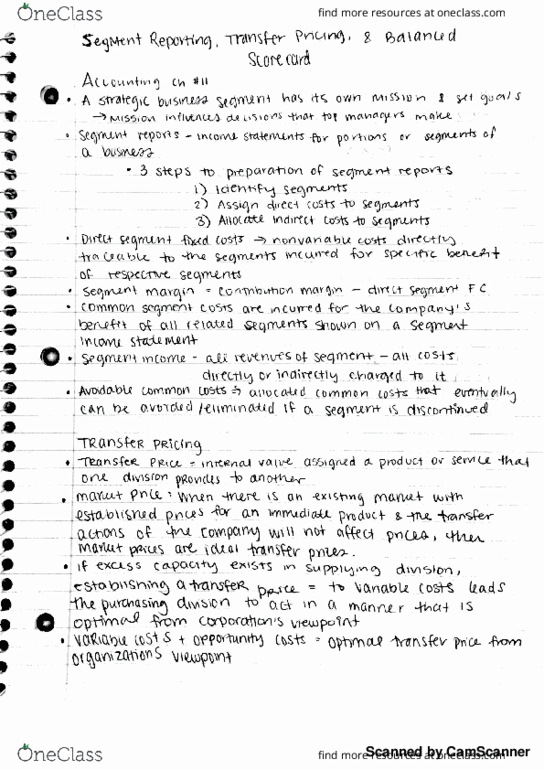 OneClass
find more resources at oneclass.com
Segment Reporting, Transfer Pricing, & Balanced
Scorecard
Accounting Ch #11
• A strategic business segment has its own mission & set goals
→ Mission influences decisions that top managers make
• Segment reports - income statements for portions or segments of
a business
• 3 steps to preparation of segment reports
1) Identify segments
2) Assign direct costs to segments
3) Allocate indirect costs to segments
• Direct segment fixed costs → nonvariable costs directly
traceable to the segments incurred for specific benefit
of respective segments
• Segment margin = contribution margin - direct segment FC
• Common segment costs are incurred for the company's
benefit of all related segments shown on a segment
income statement
• Segment income - all revenues of segment - all costs
directly or indirectly charged to it
• Avoidable common costs → allocated common costs that eventually
can be avoided/eliminated if a segment is discontinued
Transfer Pricing
• Transfer Price = internal value assigned a product or service that
one division provides to another
• market price: When there is an existing market with
established prices for an immediate product & the transfer
actions of the company will not affect prices, then
market prices are ideal transfer prices.
• if excess capacity exists in supplying division,
establishing a transfer price = to variable costs leads
the purchasing division to act in a manner that is
optimal from corporation's viewpoint
• variable costs + opportunity costs = optimal transfer price from
organizations viewpoint
OneClass
find more resources at oneclass.com
Scanned by CamScanner